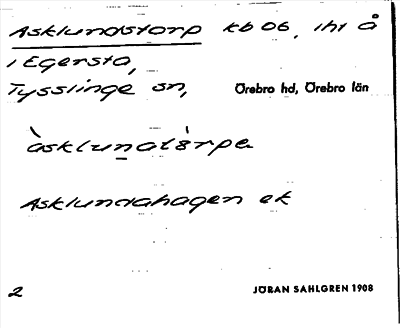 Asklundstorp kb 06, 1h1 å
i Egersta,
Tysslinge sn, Örebro hd, Örebro län
àsklu̲natórpa
Asklundahagen ek
2 JÖRAN SAHLGREN 1908